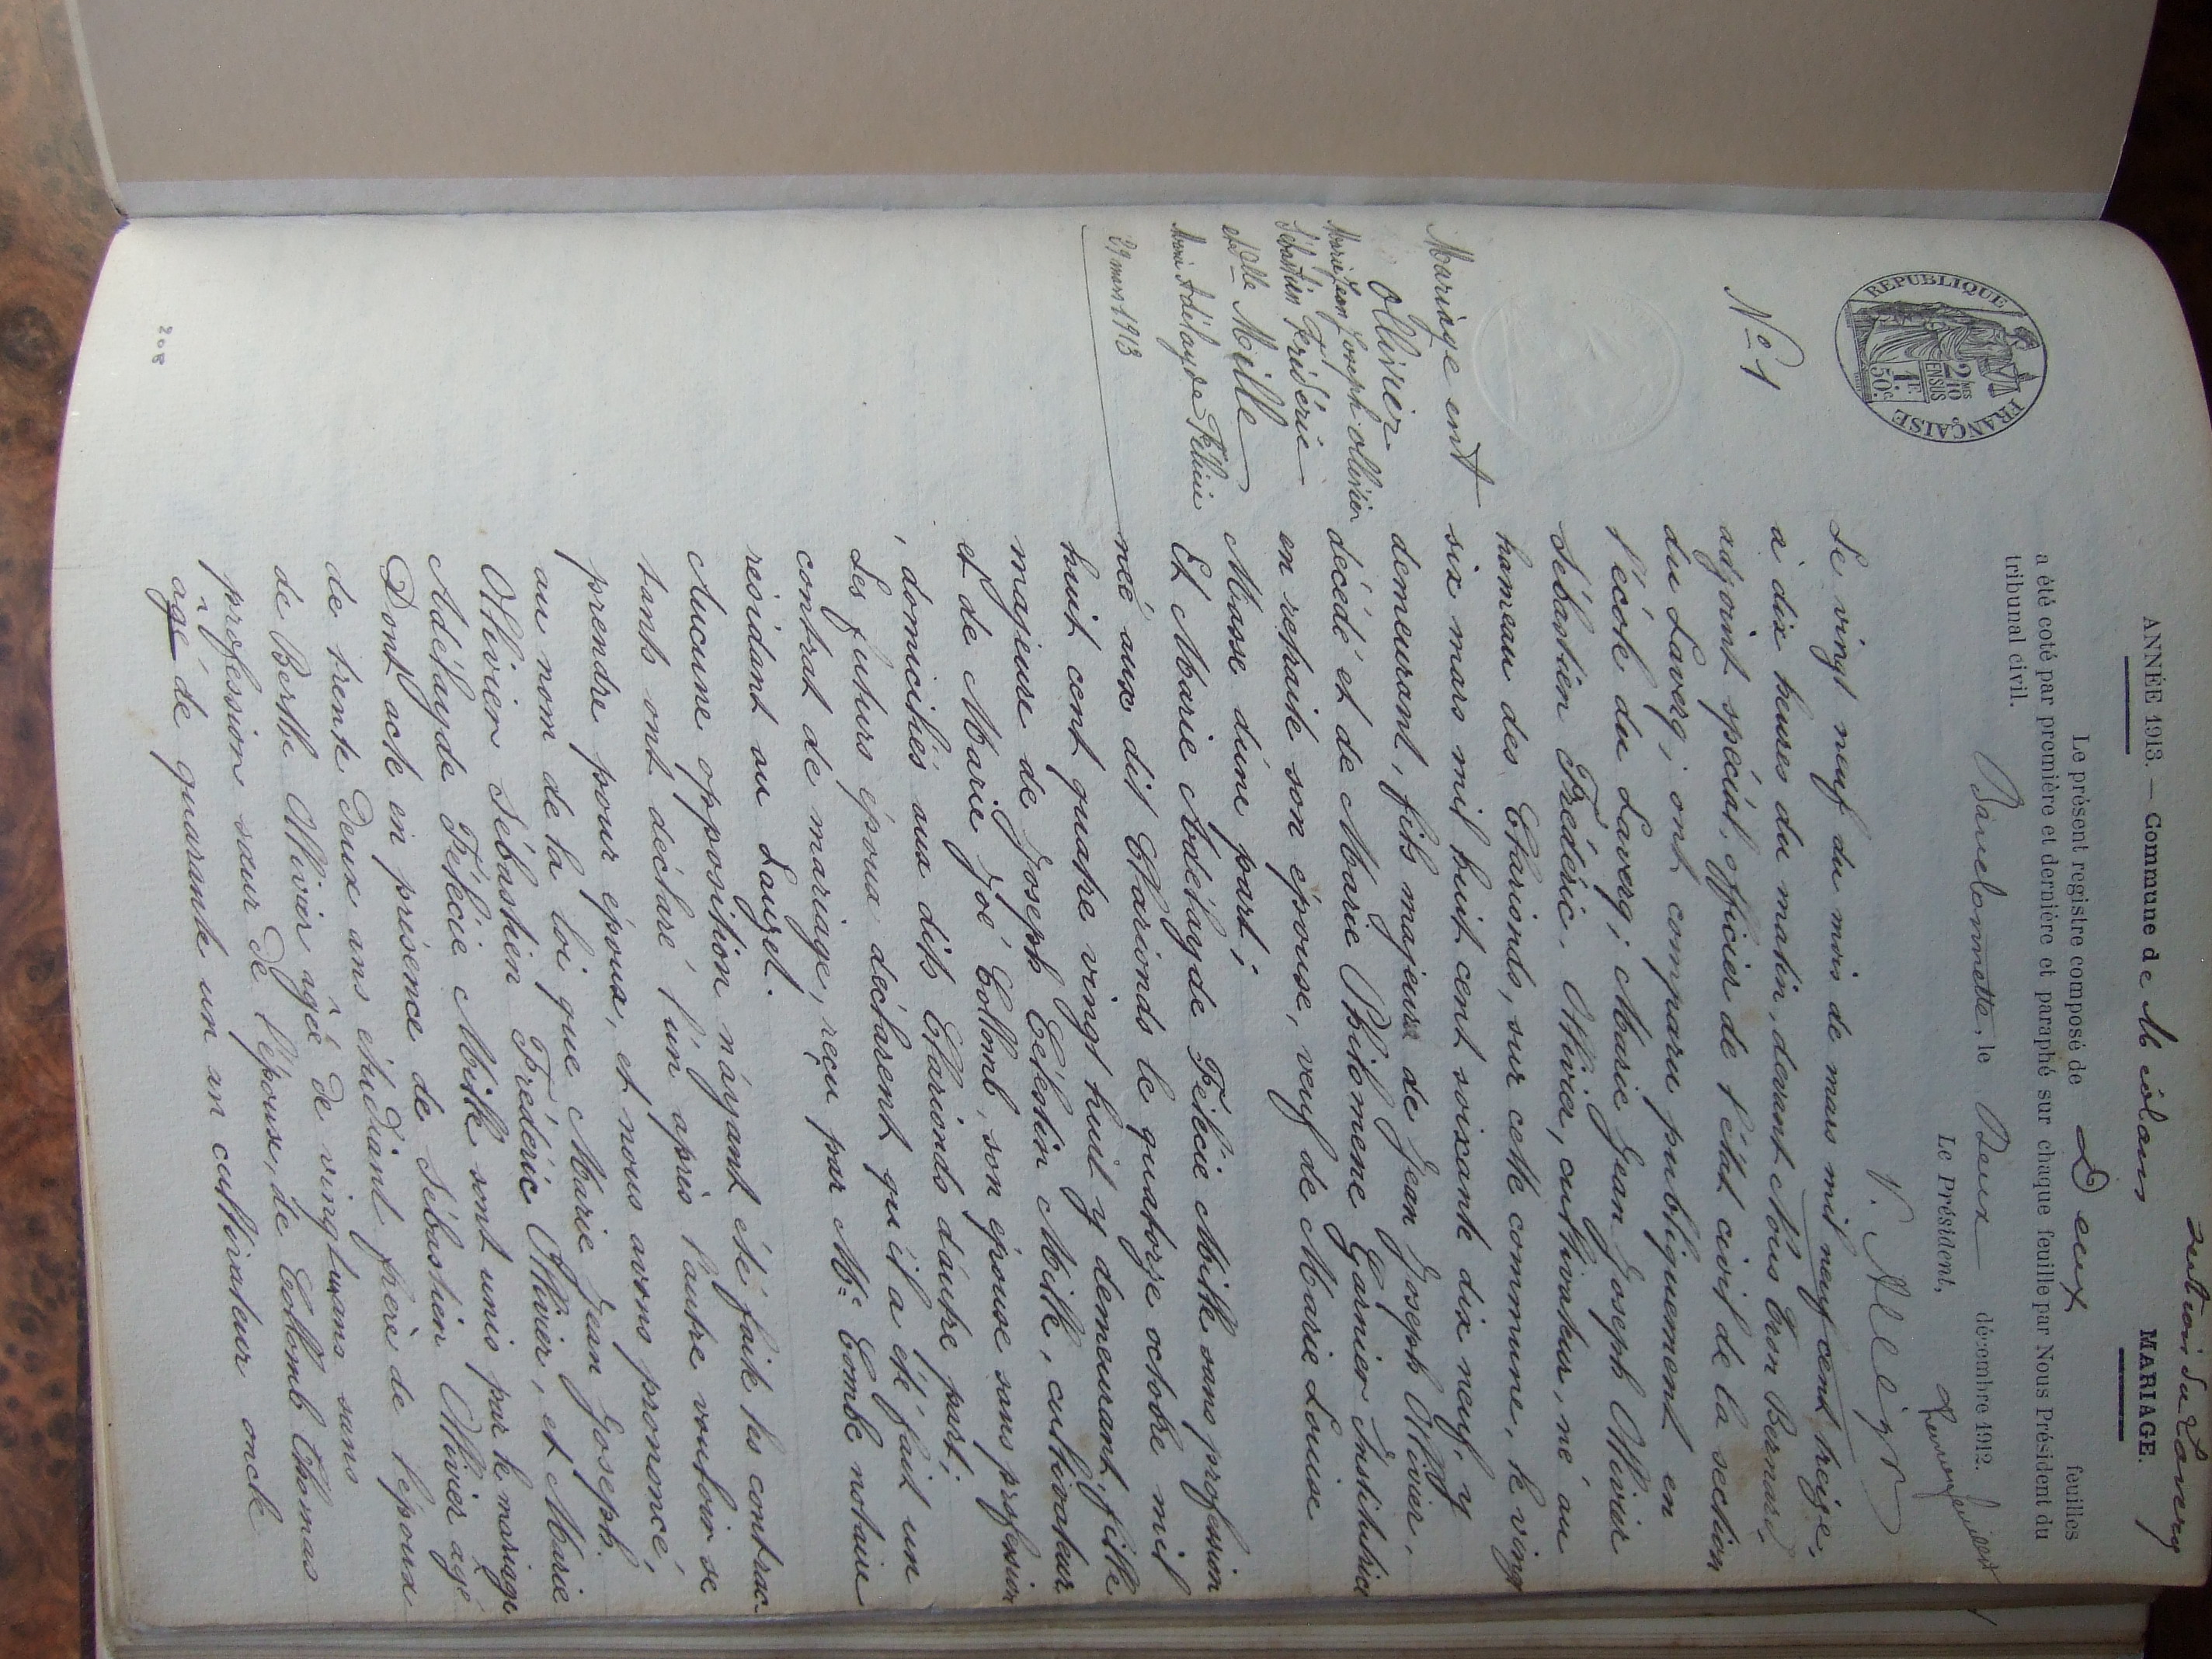 section du Laverq
ANNÉE 1913. — Commune de Méolans MARIAGE.
Le présent registre composé de Deux feuilles
a été coté par première et dernière et paraphé sur chaque feuille par Nous Président du
tribunal civil.
Barcelonnette, le Deux décembre 1912.
Le Président,
RÉPUBLIQUE FRANÇAISE
2 MES
10
EN SUS
1F.
50c.
No 1
Le vingt neuf du mois de mars mil neuf cent treize,
à dix heures du matin, devant Nous Tron Bernard,
adjoint spécial, officier de l'état civil de la section
du Laverq; ont comparu publiquement en
l'école du Laverq; Marie Jean Joseph Ollivier
Sébastien Frédéric. Ollivier, cultivateur, né au
hameau des Clarionds, sur cette commune, le vingt
six mars mil huit cent soixante dix neuf, y
demeurant, fils majeur de Jean Joseph Ollivier,
décédé et de Marie Philomène Garnier Institutrice
en retraite son épouse, veuf de Marie Louise
Masse d'une part;
Et Marie Adélayde Félicie Mille sans profession
née aux dit Clarionds le quatorze octobre mil
huit cent quatre vingt huit y demeurant, fille
majeure de Joseph Célestin Mille, cultivateur
et de Marie Zoé Collomb, son épouse sans profession
, domiciliés aux dits Clarionds d'autre part;
Les futurs époux déclarent qu'il a été fait un
contrat de mariage, reçu par Me Combe notaire
residant au Lauzet.
Aucune opposition n'ayant été faite les contrac
tants ont déclaré l'un après l'autre vouloir se
prendre pour époux, et nous avons prononcé,
au nom de la loi que Marie Jean Joseph.
Ollivier Sébastien Frédéric Ollivier, et Marie
Adélayde Félicie Mille sont unis par le mariage
Dont acte en présence de Sébastien Ollivier agé
de trente Deux ans étudiant frère de l'époux
de Berthe Ollivier agée de vingt ans sans
profession sœur de l'époux, de Collomb Thomas
agé de quarante un an cultivateur oncle
Mariage ent
Ollivier
Marie Jean Joseph ollivier
Sébastien Frédéric
et de Dlle Mille
Marie Adélayde Félicie
29 mars 1913
208